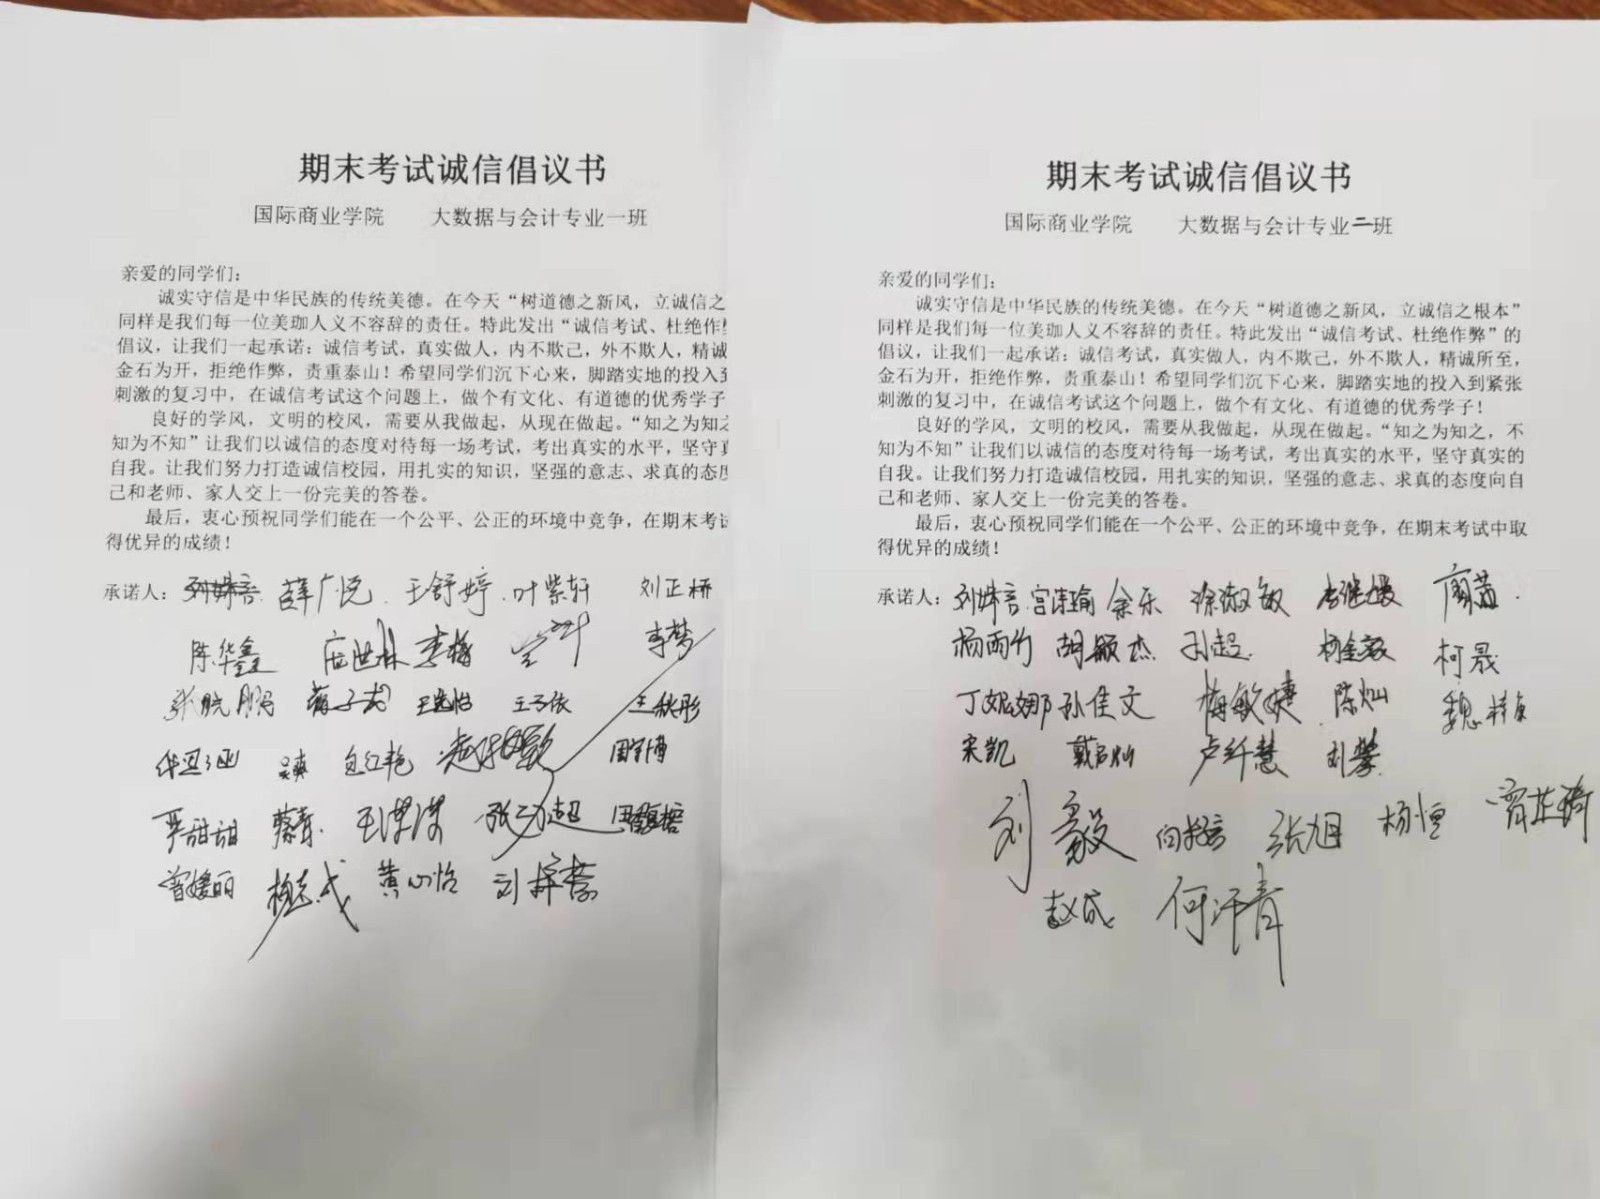 期末考试诚信倡议书
国际商业学院 大数据与会计专业一班
亲爱的同学们：
诚实守信是中华民族的传统美德。在今天“树道德之新风，立诚信之
同样是我们每一位美珈人义不容辞的责任。特此发出“诚信考试、杜绝作弊
倡议，让我们一起承诺：诚信考试，真实做人，内不欺己，外不欺人，精诚
金石为开，拒绝作弊，责重泰山！希望同学们沉下心来，脚踏实地的投入到
刺激的复习中，在诚信考试这个问题上，做个有文化、有道德的优秀学子
良好的学风，文明的校风，需要从我做起，从现在做起。“知之为知之
知为不知”让我们以诚信的态度对待每一场考试，考出真实的水平，坚守真
自我。让我们努力打造诚信校园，用扎实的知识，坚强的意志、求真的态度
己和老师、家人交上一份完美的答卷。
最后，衷心预祝同学们能在一个公平、公正的环境中竞争，在期末考试
得优异的成绩！
承诺人： 薛广悦 王舒婷 叶紫轩 刘正桥
陈华鑫 李梅 李梦
张皖鹏 王子依 王秋彤
包红艳
严甜甜 蔡青
曾媛丽 黄心怡 刘梓
期末考试诚信倡议书
国际商业学院 大数据与会计专业二班
亲爱的同学们：
诚实守信是中华民族的传统美德。在今天“树道德之新风，立诚信之根本”
同样是我们每一位美珈人义不容辞的责任。特此发出“诚信考试、杜绝作弊”的
倡议，让我们一起承诺：诚信考试，真实做人，内不欺己，外不欺人，精诚所至，
金石为开，拒绝作弊，责重泰山！希望同学们沉下心来，脚踏实地的投入到紧张
刺激的复习中，在诚信考试这个问题上，做个有文化、有道德的优秀学子！
良好的学风，文明的校风，需要从我做起，从现在做起。“知之为知之，不
知为不知”让我们以诚信的态度对待每一场考试，考出真实的水平，坚守真实的
自我。让我们努力打造诚信校园，用扎实的知识，坚强的意志、求真的态度向自
己和老师、家人交上一份完美的答卷。
最后，衷心预祝同学们能在一个公平、公正的环境中竞争，在期末考试中取
得优异的成绩！
承诺人：刘姝言 余乐 徐淑敏 廖茜
杨雨竹 胡颖杰 孙超 柯晟
丁妮娜 孙佳文 梅敏婕 陈灿
宋凯 卢纤慧 刘攀
刘毅 张旭 杨恒
赵成 何汗青